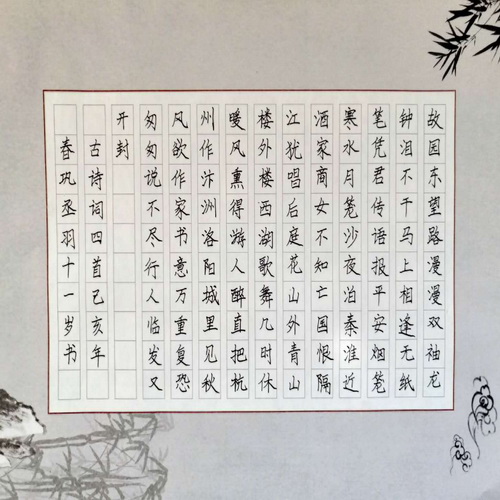 故国东望路漫漫双袖龙
钟泪不干马上相逢无纸
笔凭君传语报平安烟笼
寒水月笼沙夜泊秦淮近
酒家商女不知亡国恨隔
江犹唱后庭花山外青山
楼外楼西湖歌舞几时休
暖风熏得游人醉直把杭
州作汴洲洛阳城里见秋
风欲作家书意万重复恐
匆匆说不尽行人临发又
开封
古诗词四首己亥年
春巩丞羽十一岁书